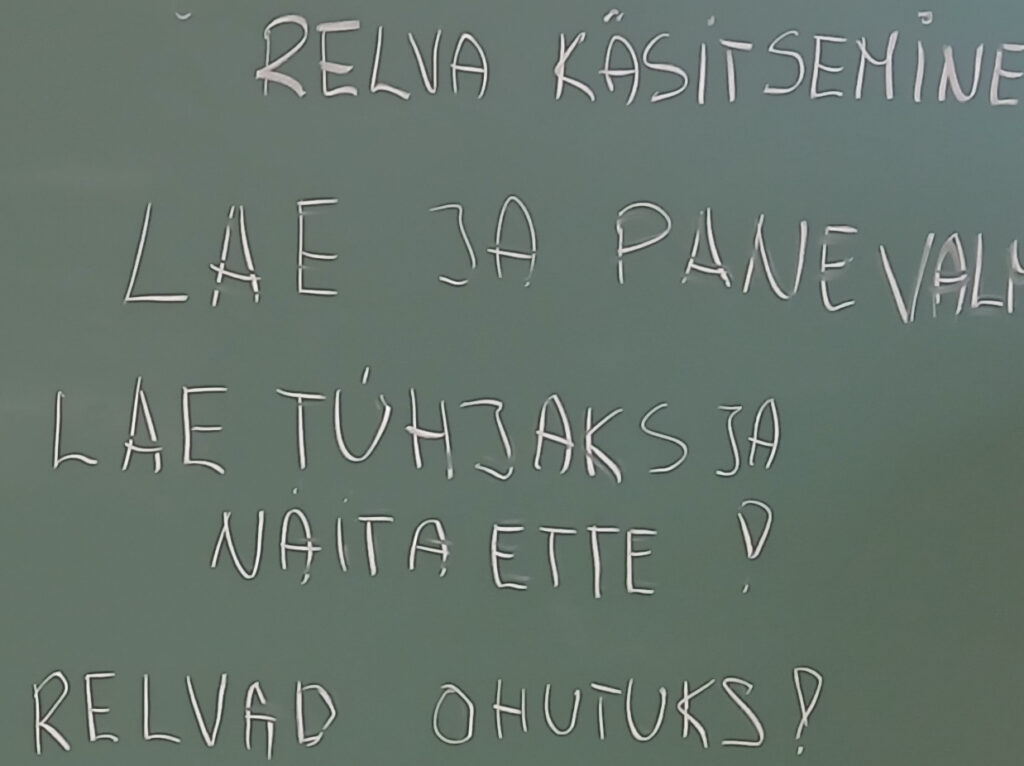 RELVA KÄSITSEMINE
LAE JA PANE
LAE TÜHJAKS JA
NÄITA ETTE!
RELVAD OHUTUKS!